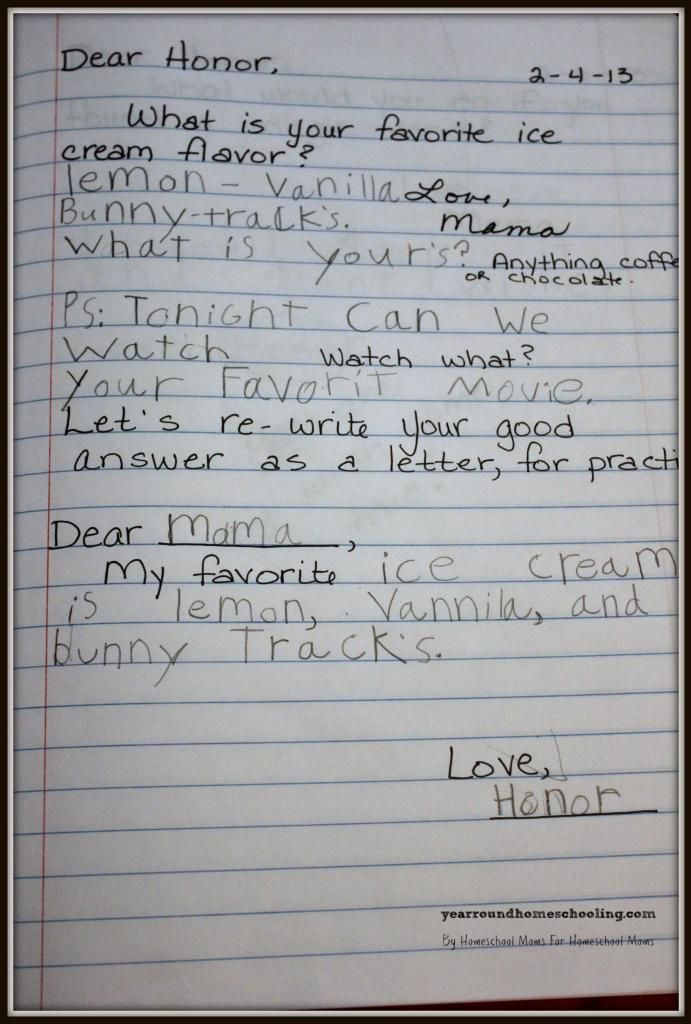 Dear Honor,
2-4-13
What is your favorite ice
cream flavor?
lemon - Vanilla Love,
Bunny-track's. Mama
What is your's? Anything coffe
OR chocolate.
PS: Tonight Can We
Watch Watch what?
Your Favorit Movie.
Let's re-write your good
answer as a letter, for practi
Dear Mama,
My favorite ice cream
is lemon, Vannila, and
bunny Track's.
Love,
Honor
yearroundhomeschooling.com
By Homeschool Moms For Homeschool Moms